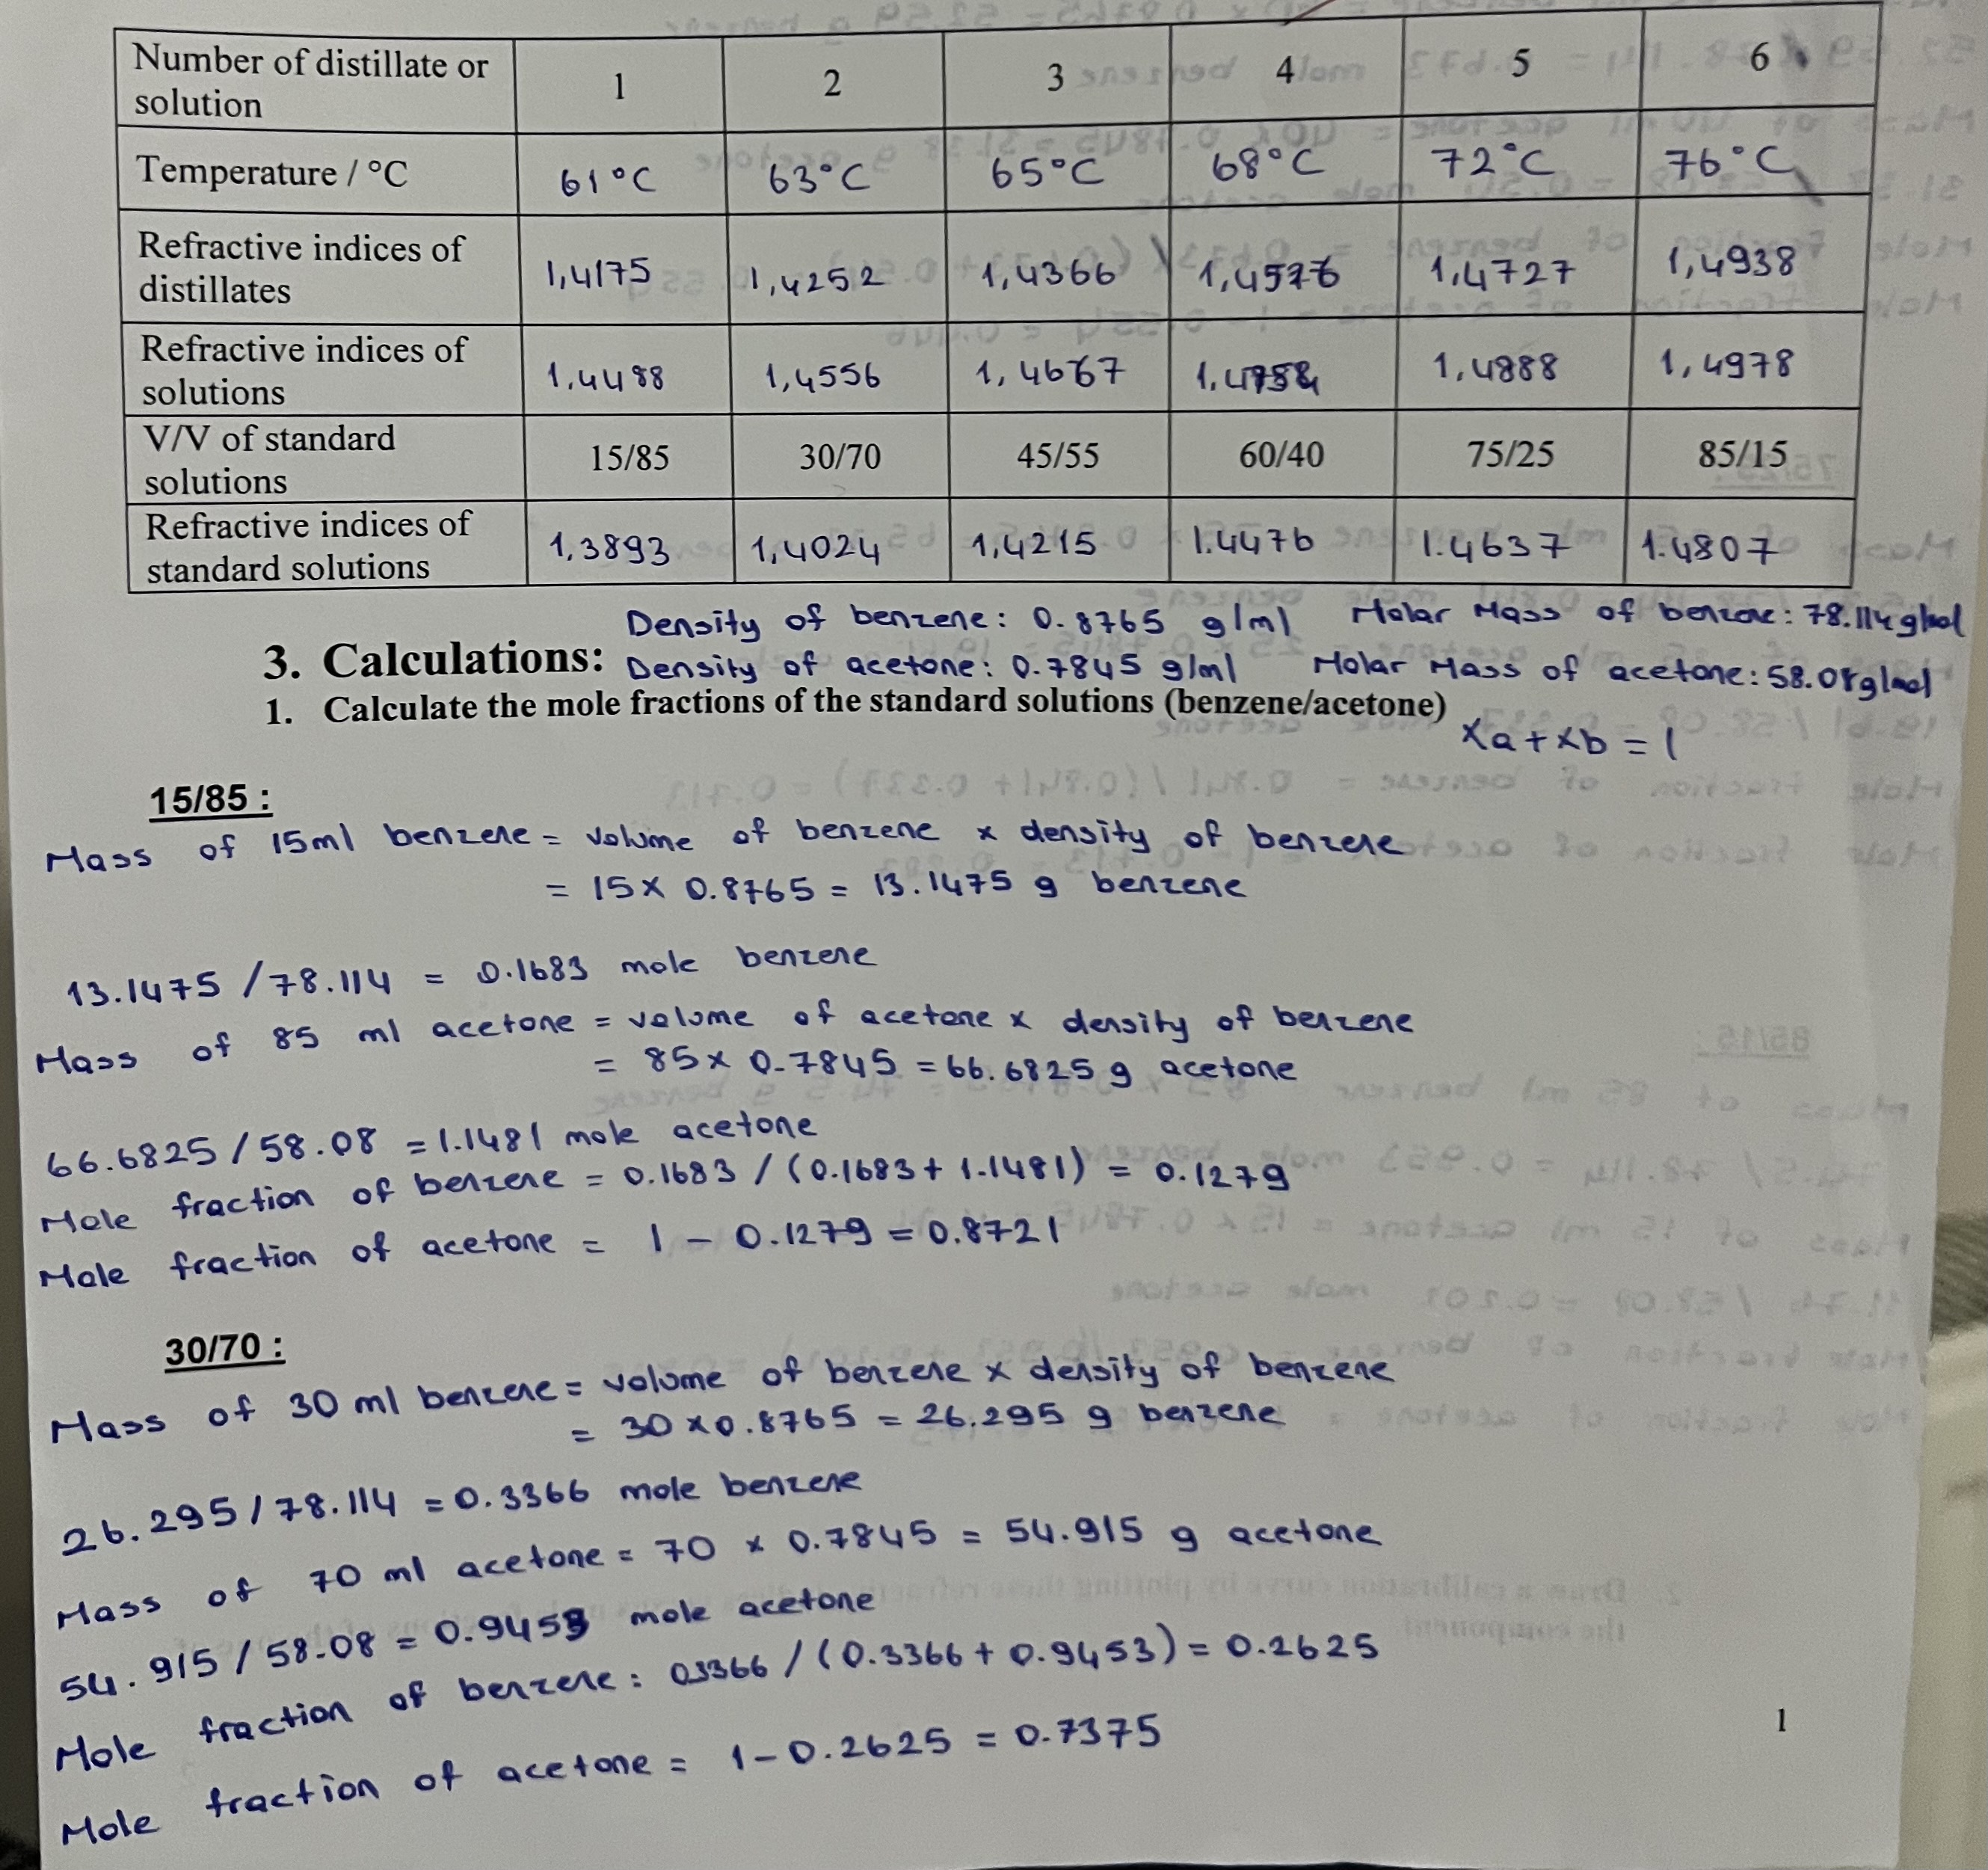 Number of distillate or solution 1 2 3 4 5 6
Temperature / °C 61°C 63°C 65°C 68°C 72°C 76°C
Refractive indices of distillates 1,4175 1,4252 1,4366 1,4727 1,4938
Refractive indices of solutions 1,4556 1,4667 1,4888 1,4978
V/V of standard solutions 15/85 30/70 45/55 60/40 75/25 85/15
Refractive indices of standard solutions 1,3893 1,4024 1,4215 1.4476 1.4637 1.4807
Density of benzene: 0.8765 g/ml Molar Mass of benzene: 78.114 g/mol
3. Calculations: Density of acetone: 0.7845 g/ml Molar Mass of acetone: 58.08 g/mol
1. Calculate the mole fractions of the standard solutions (benzene/acetone)
xa + xb = 1
15/85 :
Mass of 15ml benzene = volume of benzene x density of benzene
= 15 x 0.8765 = 13.1475 g benzene
13.1475 / 78.114 = 0.1683 mole benzene
Mass of 85 ml acetone = volume of acetone x density of benzene
= 85 x 0.7845 = 66.6825 g acetone
66.6825 / 58.08 = 1.1481 mole acetone
Mole fraction of benzene = 0.1683 / (0.1683 + 1.1481) = 0.1279
Mole fraction of acetone = 1 - 0.1279 = 0.8721
30/70 :
Mass of 30 ml benzene = volume of benzene x density of benzene
= 30 x 0.8765 = 26.295 g benzene
26.295 / 78.114 = 0.3366 mole benzene
Mass of 70 ml acetone = 70 x 0.7845 = 54.915 g acetone
54.915 / 58.08 = mole acetone
Mole fraction of benzene : 0.3366 / (0.3366 + 0.9453) = 0.2625
Mole fraction of acetone = 1 - 0.2625 = 0.7375
1